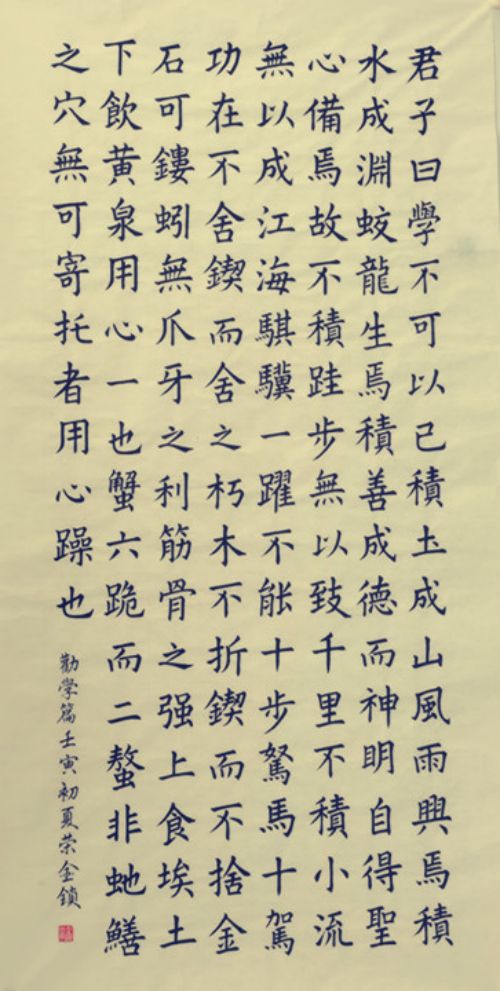 君子曰學不可以已積圡成山風雨興焉積
水成淵蛟龍生焉積善成德而神明自得聖
心備焉故不積跬步無以致千里不積小流
無以成江海騏驥一躍不能十步駑馬十駕
功在不舍鍥而舍之朽木不折鍥而不捨金
石可鏤蚓無爪牙之利筋骨之强上食埃土
下飲黄泉用心一也蟹六跪而二螯非虵鱔
之穴無可寄托者用心躁也
勸學篇壬寅初夏荣金鎖